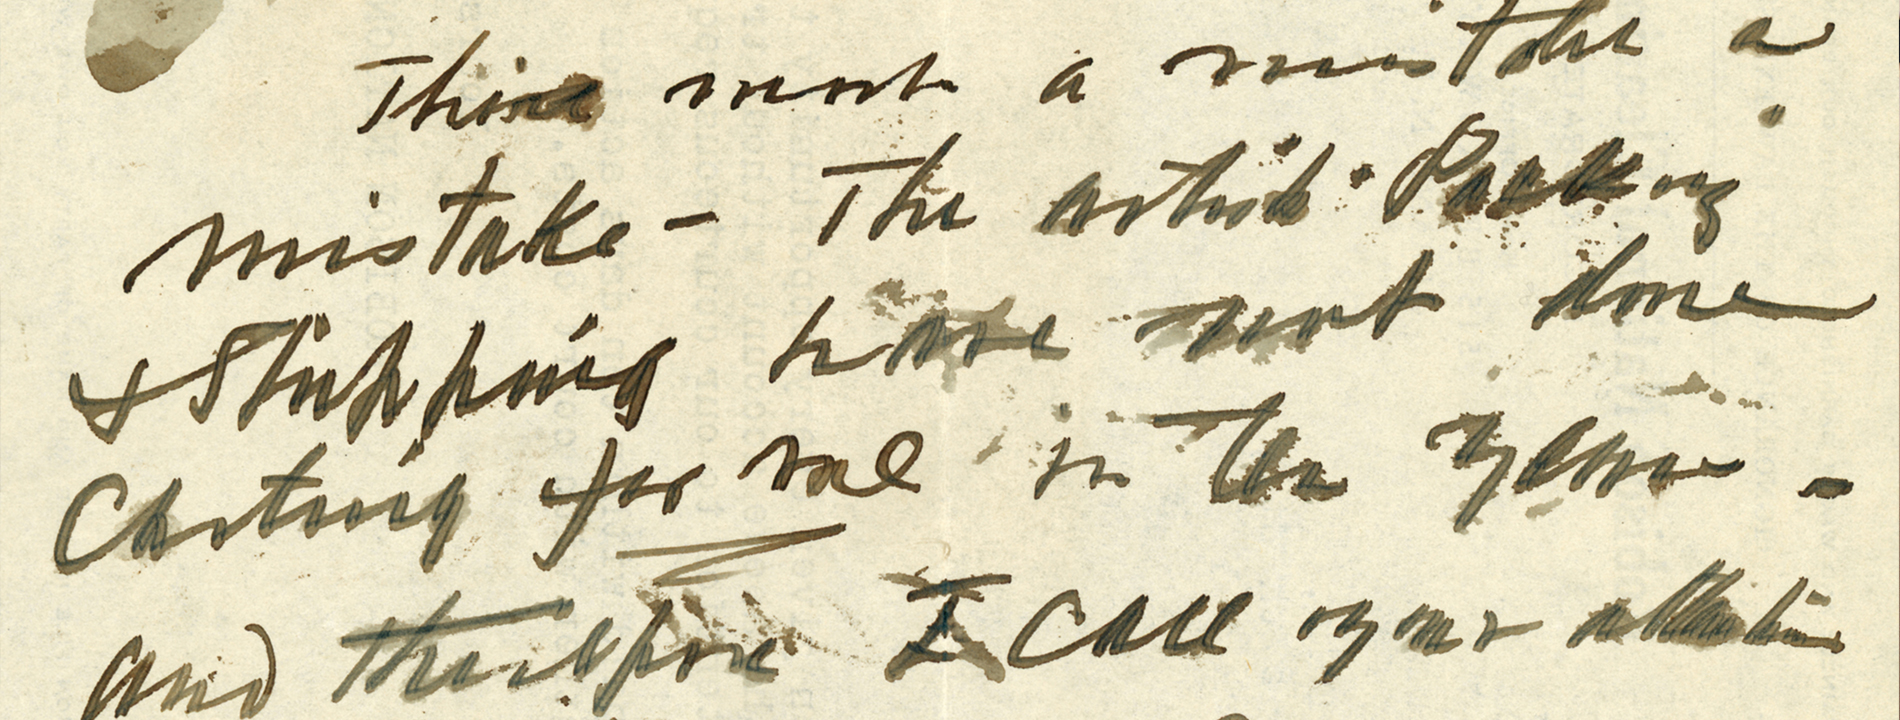 There must a mistake a
mistake - The artist Packing
& Shipping have not done
Casting for me in the years -
and therefore I call your attention